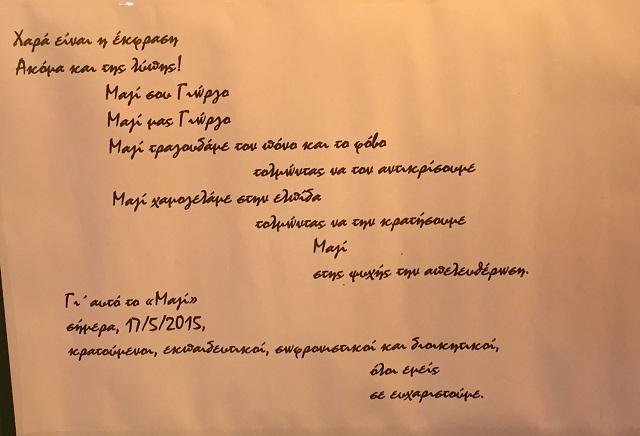 Χαρά είναι η έκφραση
Ακόμα και της λύπης!
Μαζί σου Γιώργο
Μαζί μας Γιώργο
Μαζί τραγουδάμε τον πόνο και το φόβο
τολμώντας να τον αντικρίσουμε
Μαζί χαμογελάμε στην ελπίδα
τολμώντας να την κρατήσουμε
Μαζί
στης ψυχής την απελευθέρωση.
Γι΄ αυτό το «Μαζί»
σήμερα, 17/5/2015,
κρατούμενοι, εκπαιδευτικοί, σωφρονιστικοί και διοικητικοί,
όλοι εμείς
σε ευχαριστούμε.